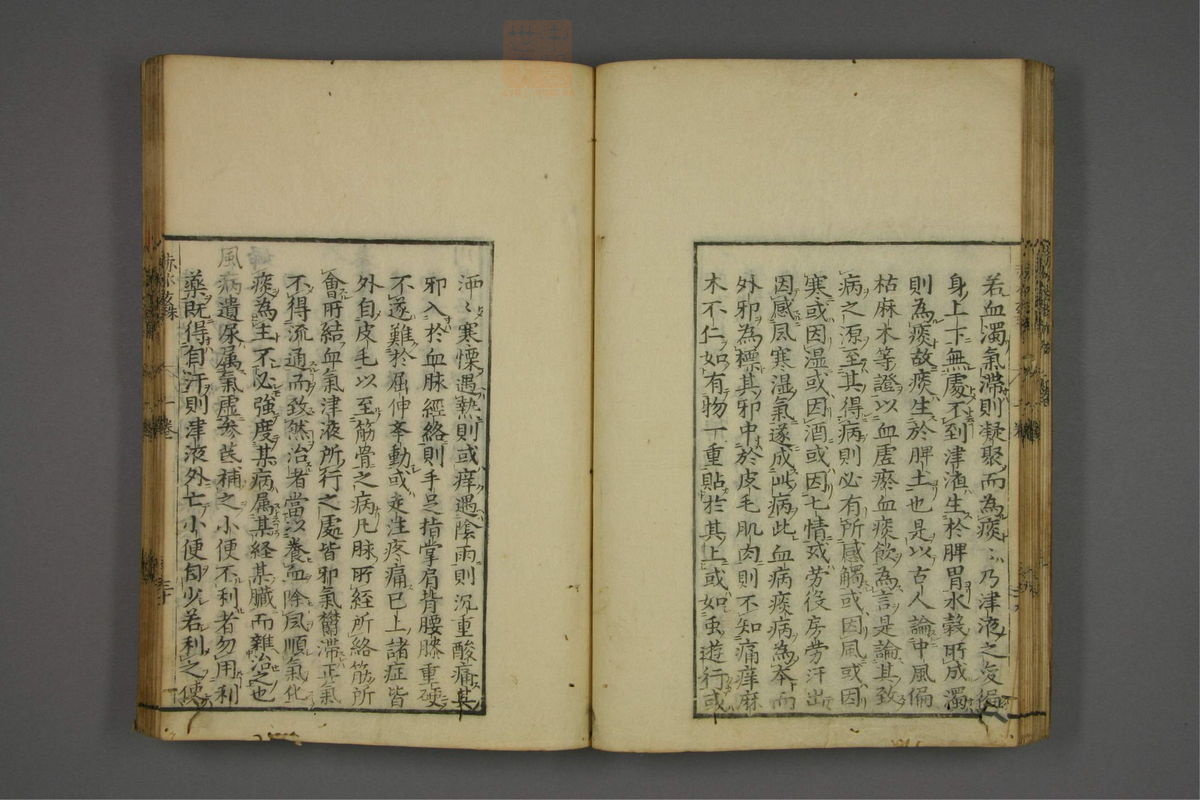 若血濁氣滯則凝聚而為痰〻乃津液之
身上下無處不到津渣生於脾胃水穀所成濁
則為痰故痰生於脾土也是以古人論中風偏
枯麻木等證以血虛瘀血痰飲為言是論其致
病之源至其得病則必有所感觸或因風或因
寒或因温或因酒或因七情或劳役房劳汗出
因感風寒湿氣遂成此病此血病痰病為本而
外邪為標其邪中於皮毛肌肉則不知痛痒麻
木不仁如有物一重貼於其上或如虫遊行或
洒〻寒慄遇熱則或痒遇陰雨則沉重酸痛其
邪入於血脉經絡則手足指掌肩背腰膝重硬
不遂難於屈伸牽動或走注疼痛已上諸症皆
外自皮毛以至筋骨之病凡脉所経所絡筋所
會所結血氣津液所行之處皆邪氣鬱滯正氣
不得流通而致然治者當以養血除風順氣化
痰為主不必強度某病属某経某臓而雜治之也
風病遺尿属氣虛参芪補之小便不利者勿用利
藥既得自汗則津液外亡小便自少若利之使
赤水玄珠
一卷